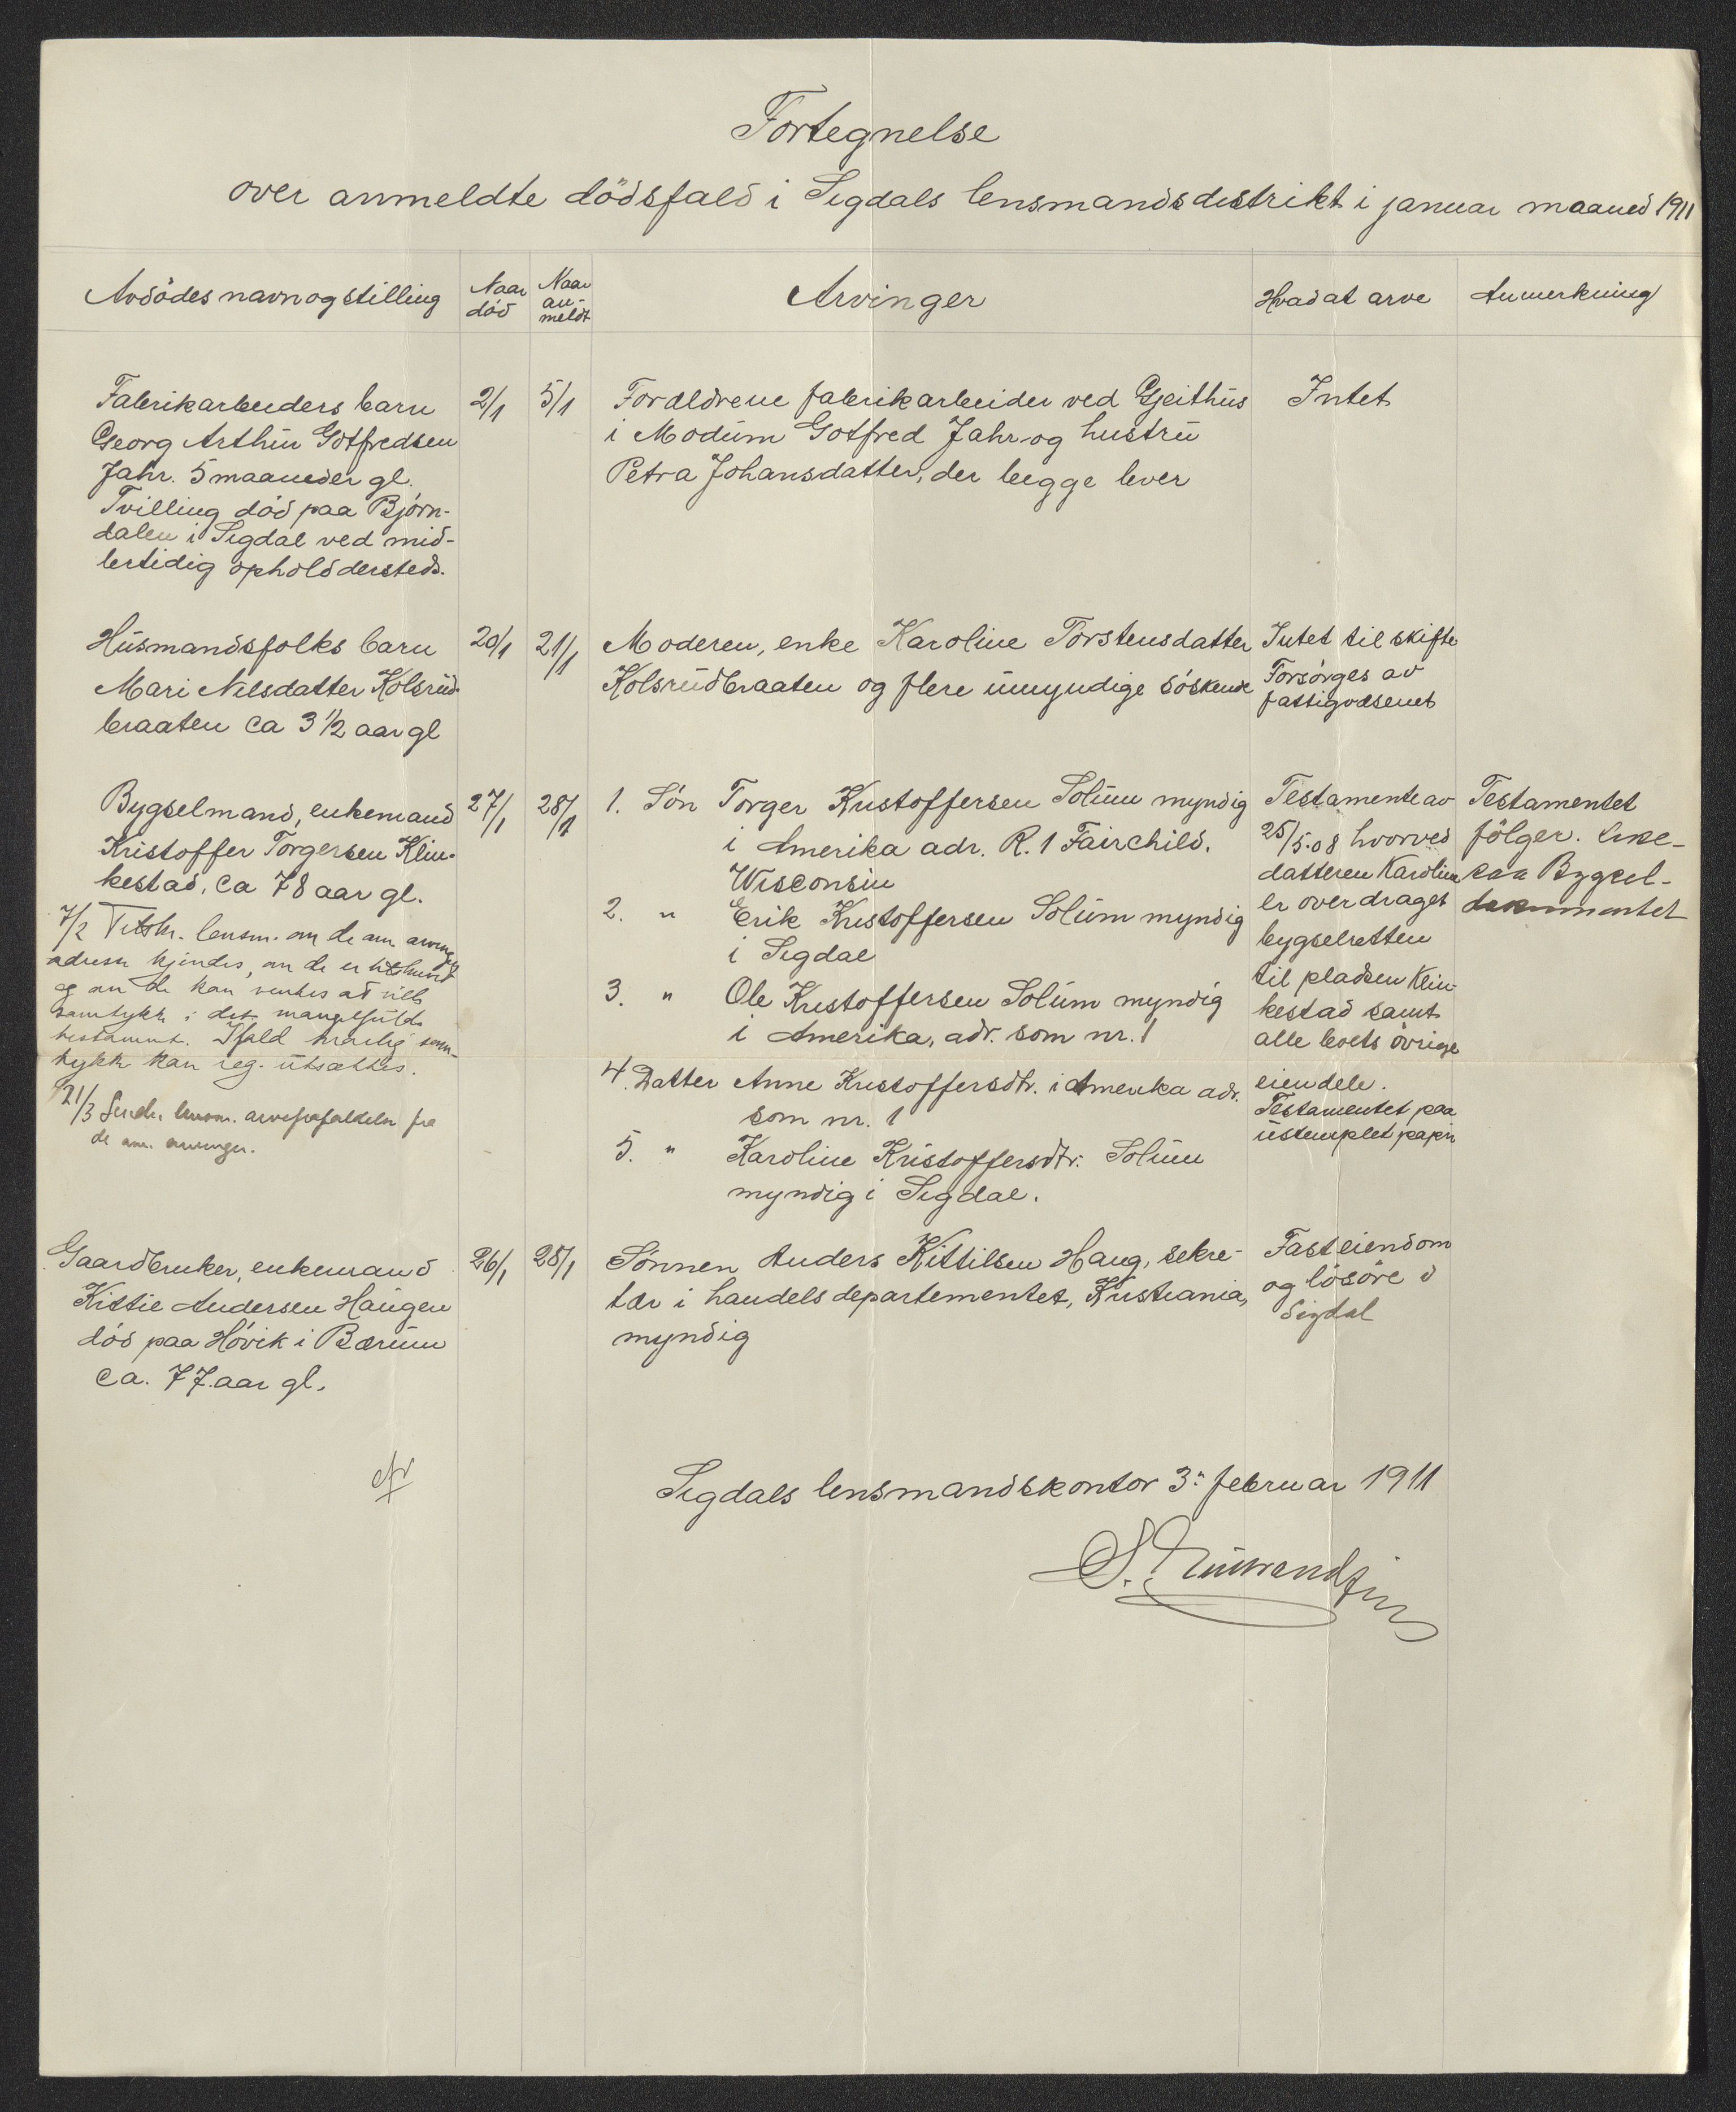 Fortegnelse
over anmeldte dödsfald i Sigdals lensmandsdistrikt i januar maaned 1911
Avdödes navn og stilling
Naar
död
Naar
an-
meldt
Arvinger
Hvad at arve
Anmerkning
Fabrikarbeiders barn
Georg Arthur Gotfredsen
Jahr. 5 maaneder gl.
Tvilling död paa Björn-
dalen i Sigdal ved mid-
lertidig ophold dersteds.
2/1
5/1
Forældrene fabrikarbeider ved Gjeithus
i Modum Gotfred Jahr og hustru
Petra Johansdatter, der begge lever
Intet
Husmandsfolks barn
Mari Nilsdatter Kolsrud-
braaten ca 3 1/2 aar gl
20/1
21/1
Moderen, enke Karoline Torstensdatter
Kolsrudbraaten og flere umyndige söskende
Intet til skifte
Forsörges av
fattigvæsenet
Bygselmand, enkemand
Kristoffer Torgersen Klin-
kestad, ca 78 aar gl.
7/2 Tilskr. lensm. om de am. arvinger
adresse kjendes, om de er
og om de kan ventes at ville
samtykke i det mangelfulde
testament. Ifald snarlig sam-
tykke kan reg. utsættes.
21/3 Sender lensm. arvefrafaldelse fra
de am. arvinger.
27/1
28/1
1. Sön Torger Kristoffersen Solum myndig
i Amerika adr. R. 1 Fairchild.
Wisconsin
2. " Erik Kristoffersen Solum myndig
i Sigdal
3. " Ole Kristoffersen Solum myndig
i Amerika, adr. som nr. 1
4. Datter Anne Kristoffersdtr. i Amerika adr.
som nr. 1
5. " Karoline Kristoffersdtr. Solum
myndig i Sigdal.
Testamente av
25/5.08 hvorved
datteren Karoline
er overdraget
bygselretten
til pladsen Klin-
kestad samt
alle boets övrige
eiendele.
Testamentet paa
ustemplet papir
Testamentet
fölger. like-
saa Bygsel-
dokumentet
Gaardbruker, enkemand
Kittil Andersen Haugen
död paa Hövik i Bærum
ca. 77 aar gl.
26/1
28/1
Sönnen Anders Kittilsen Haug, sekre-
tær i handelsdepartementet, Kristiania,
myndig
Fast eiendom
og lösöre i
Sigdal
Sigdals lensmandskontor 3. februar 1911